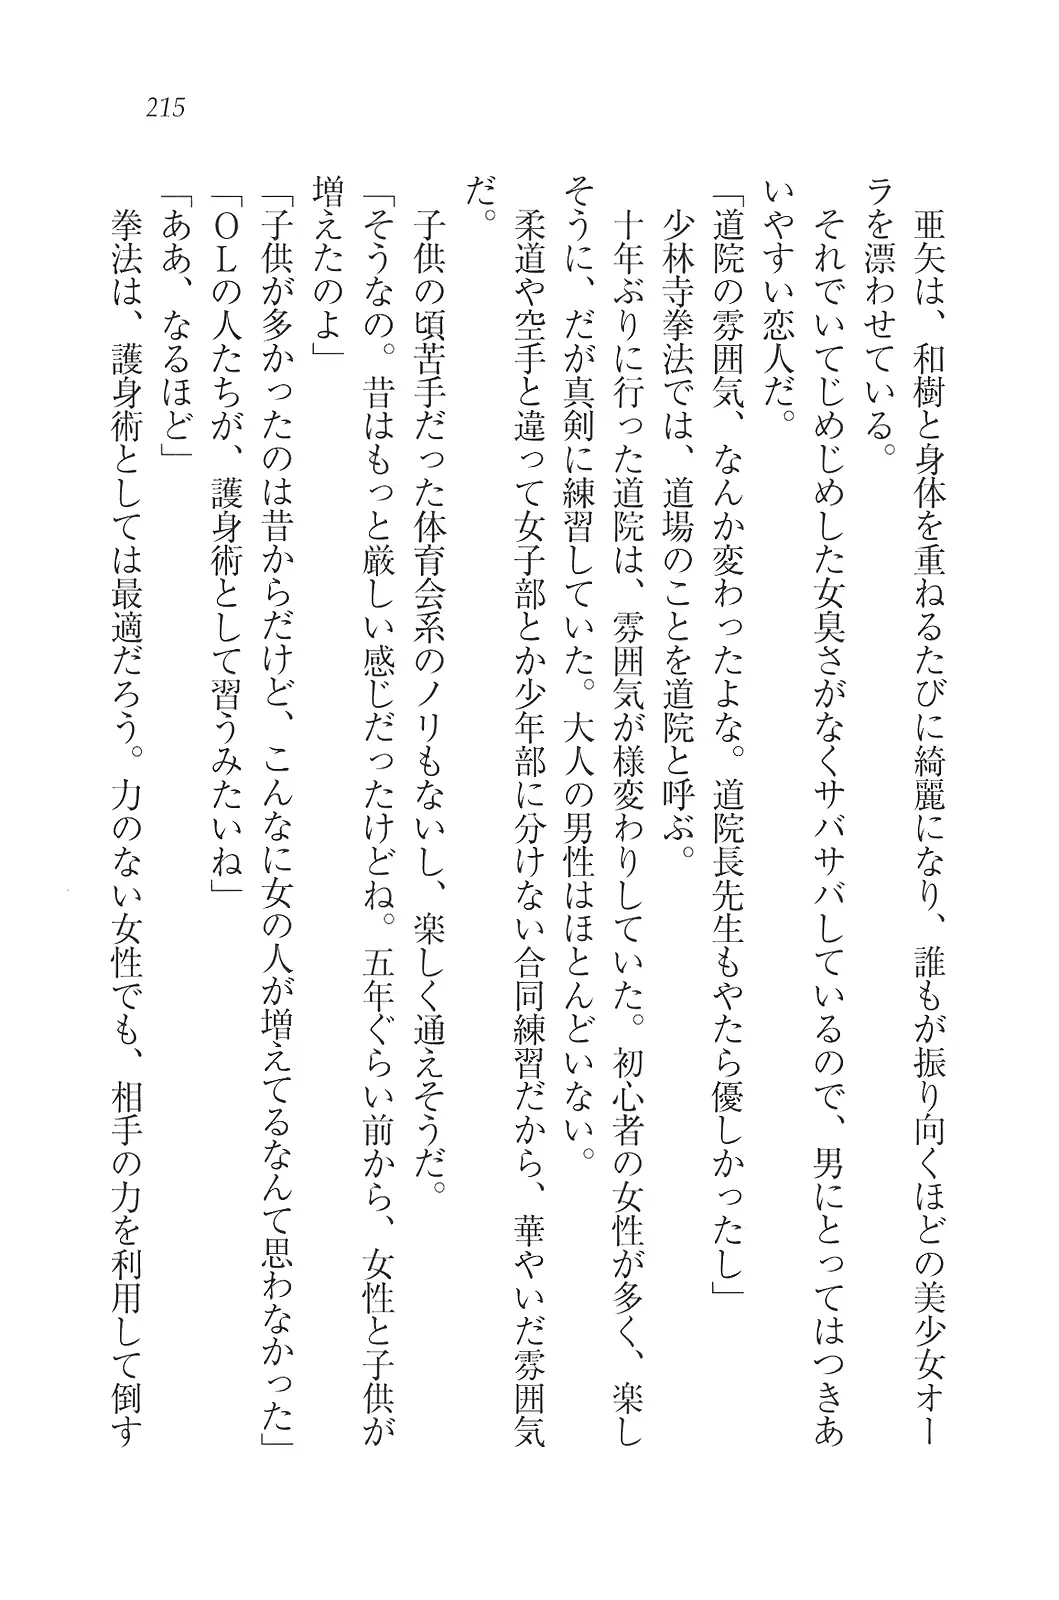 215
亜矢は、和樹と身体を重ねるたびに綺麗になり、誰もが振り向くほどの美少女オー
ラを漂わせている。
それでいてじめじめした女臭さがなくサバサバしているので、男にとってはつきあ
いやすい恋人だ。
「道院の雰囲気、なんか変わったよな。道院長先生もやたら優しかったし」
少林寺拳法では、道場のことを道院と呼ぶ。
十年ぶりに行った道院は、雰囲気が様変わりしていた。初心者の女性が多く、楽し
そうに、だが真剣に練習していた。大人の男性はほとんどいない。
柔道や空手と違って女子部とか少年部に分けない合同練習だから、華やいだ雰囲気
だ。
子供の頃苦手だった体育会系のノリもないし、楽しく通えそうだ。
「そうなの。昔はもっと厳しい感じだったけどね。五年ぐらい前から、女性と子供が
増えたのよ」
「子供が多かったのは昔からだけど、こんなに女の人が増えてるなんて思わなかった」
「ＯＬの人たちが、護身術として習うみたいね」
「ああ、なるほど」
拳法は、護身術としては最適だろう。力のない女性でも、相手の力を利用して倒す